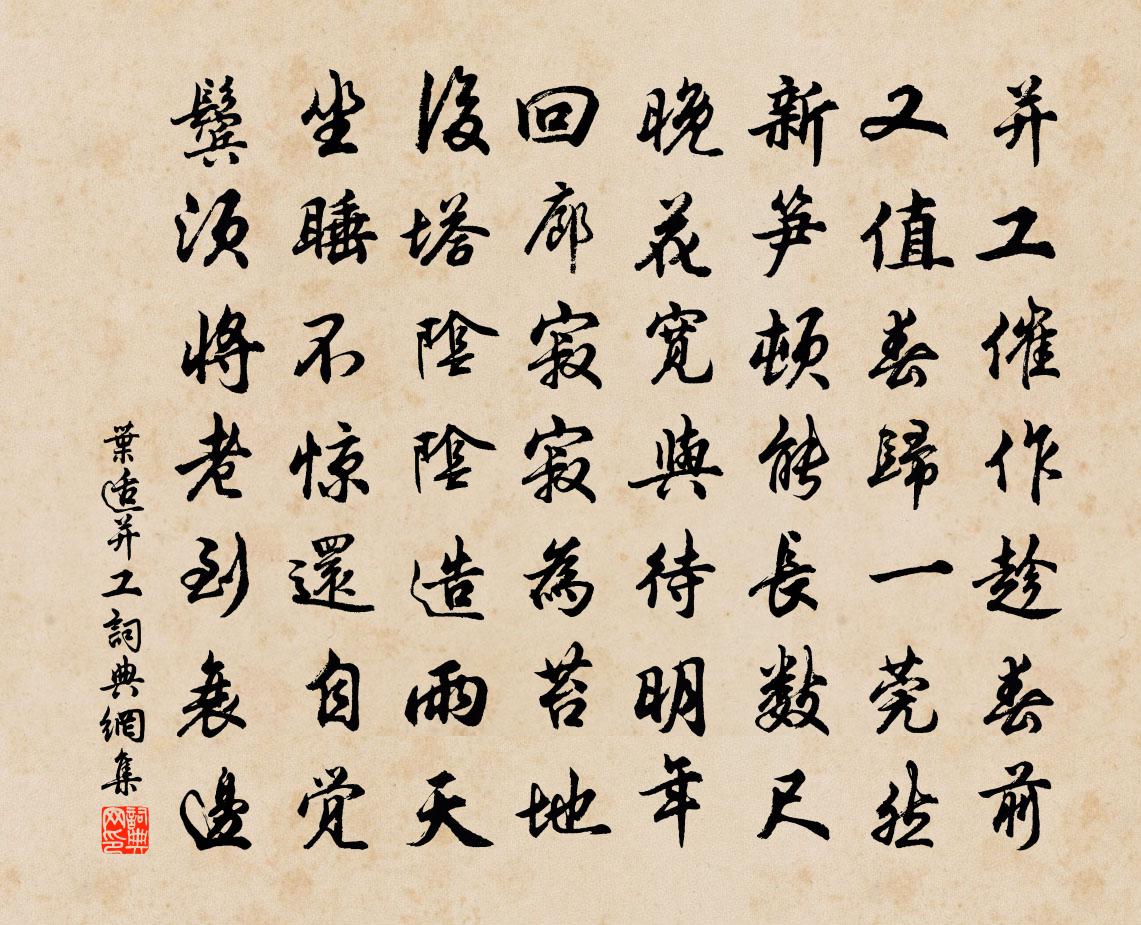 并工催作趁春前
又值春歸一莞然
新笋頓能長數尺
晚花寬與待明年
回廊寂寂為苔地
後塔陰陰造雨天
坐睡不惊還自觉
鬓须将老到衰邊
葉适并工詞典網集
詞典网印